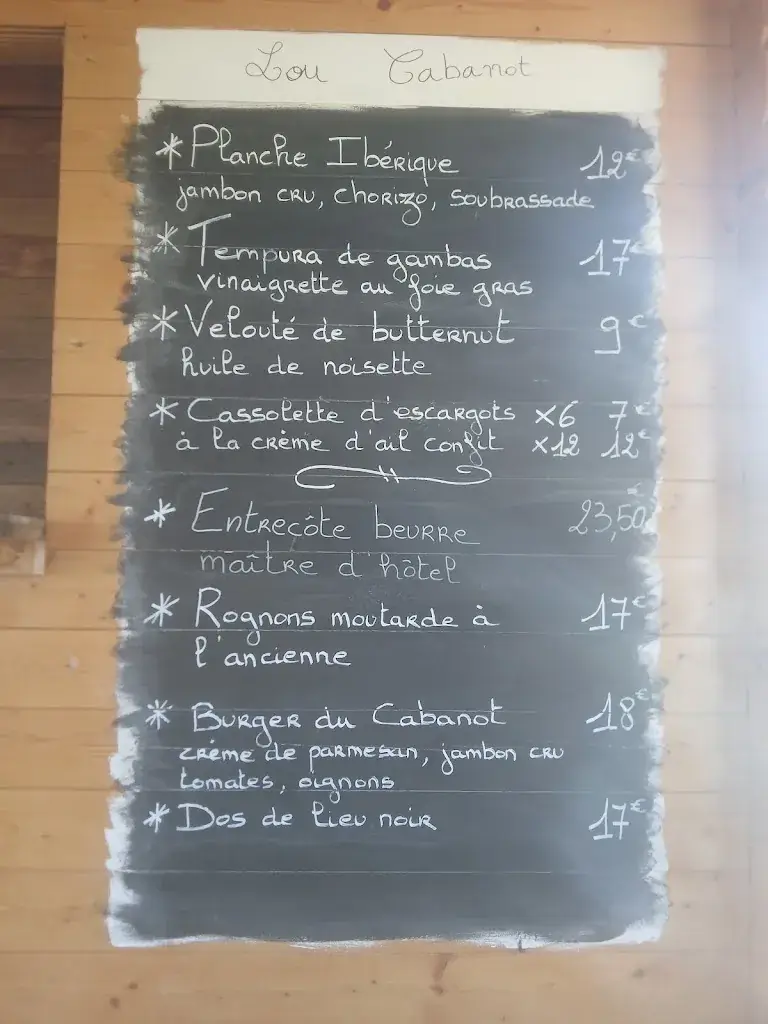 Lou Cabanot
* Planche Ibérique 12€
jambon cru, chorizo, soubrassade
* Tempura de gambas 17€
vinaigrette au foie gras
* Velouté de butternut 9€
huile de noisette
* Cassolette d'escargots x6 7€
à la crème d'ail confit x12 12€
* Entrecôte beurre 23,50€
maître d'hôtel
* Rognons moutarde à 17€
l'ancienne
* Burger du Cabanot 18€
crème de parmesan, jambon cru
tomates, oignons
* Dos de lieu noir 17€